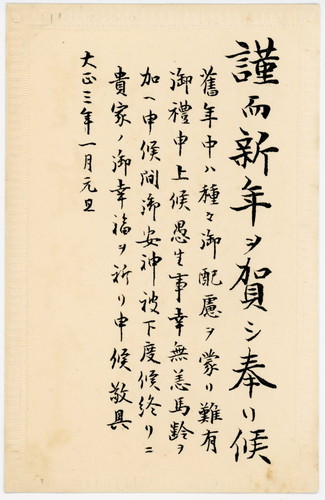 謹而新年ヲ賀シ奉リ候
舊年中ハ種々御配慮ヲ蒙リ難有
御禮申上候愚生事幸無恙馬齢ヲ
加ヘ申候間御安神被下度候終リニ
貴家ノ御幸福ヲ祈リ申候敬具
大正三年一月元旦